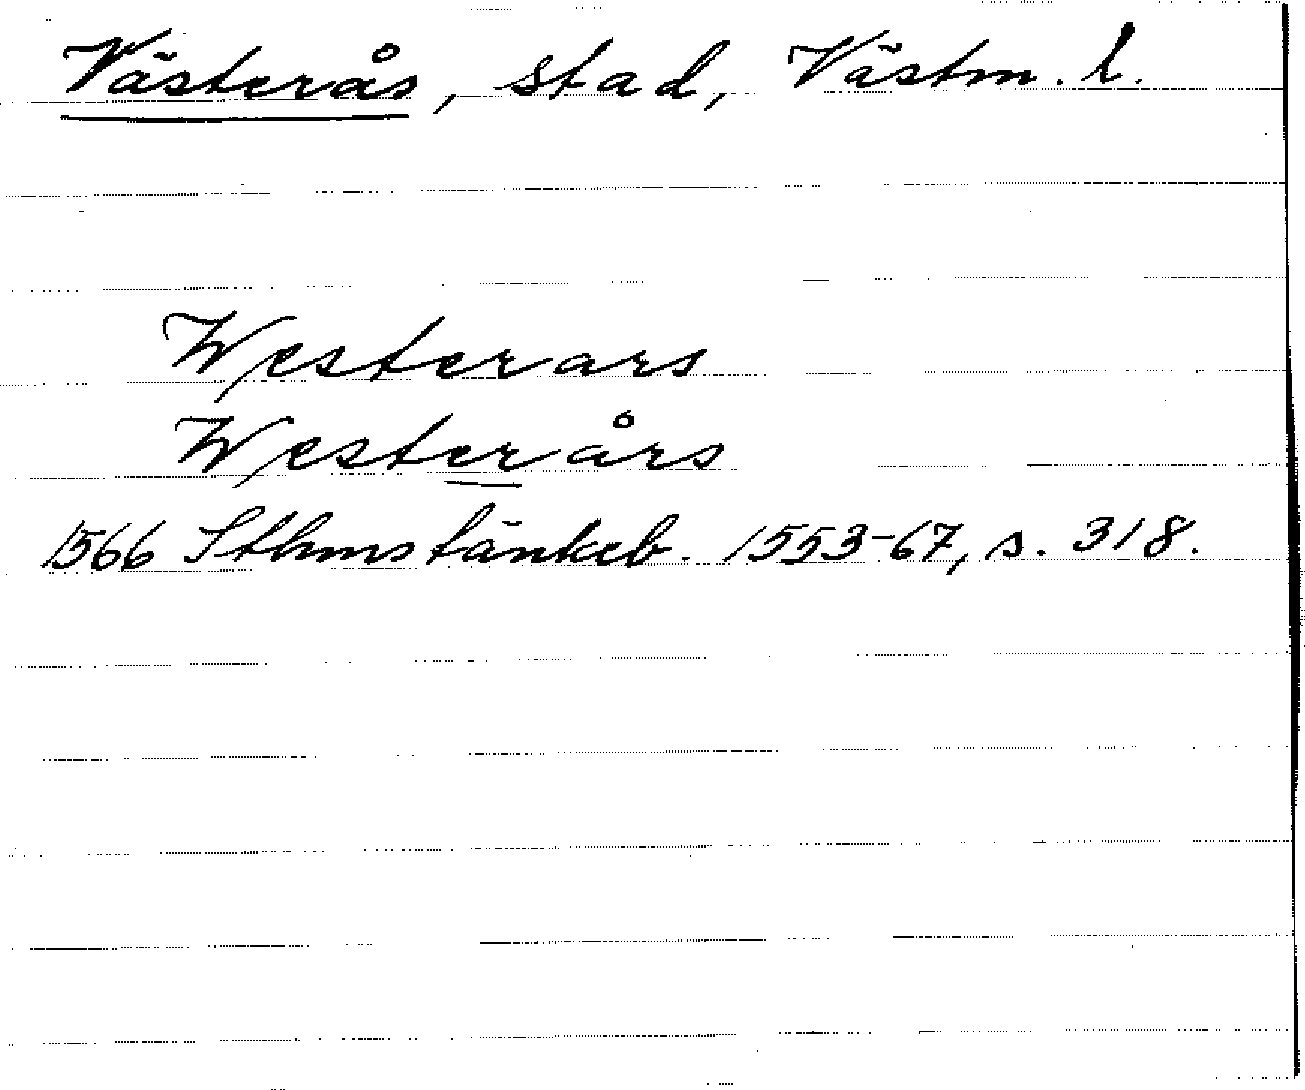 Västerås, stad, Västm. l.
Westerars
Westerårs
1566 Sthmstänkeb. 1553-67, s. 318.